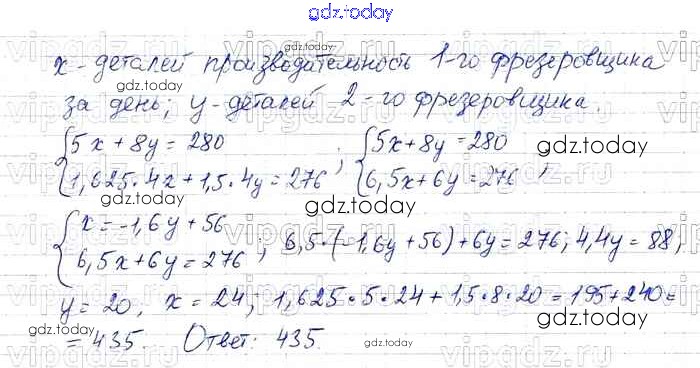 gdz.today
x - деталей производительность 1-го фрезеровщика
за день; y - деталей 2-го фрезеровщика.
{5x + 8y = 280 ; {5x + 8y = 280
{1,625·4x + 1,5·4y = 276 ; {6,5x + 6y = 276 ,
{x = -1,6y + 56
{6,5x + 6y = 276 ; 6,5·(-1,6y + 56) + 6y = 276; 4,4y = 88;
y = 20, x = 24; 1,625·5·24 + 1,5·8·20 = 195 + 240 =
= 435. Ответ: 435.
gdz.today
gdz.today
gdz.today
gdz.today
gdz.today
gdz.today
gdz.today
gdz.today
vipgdz.ru